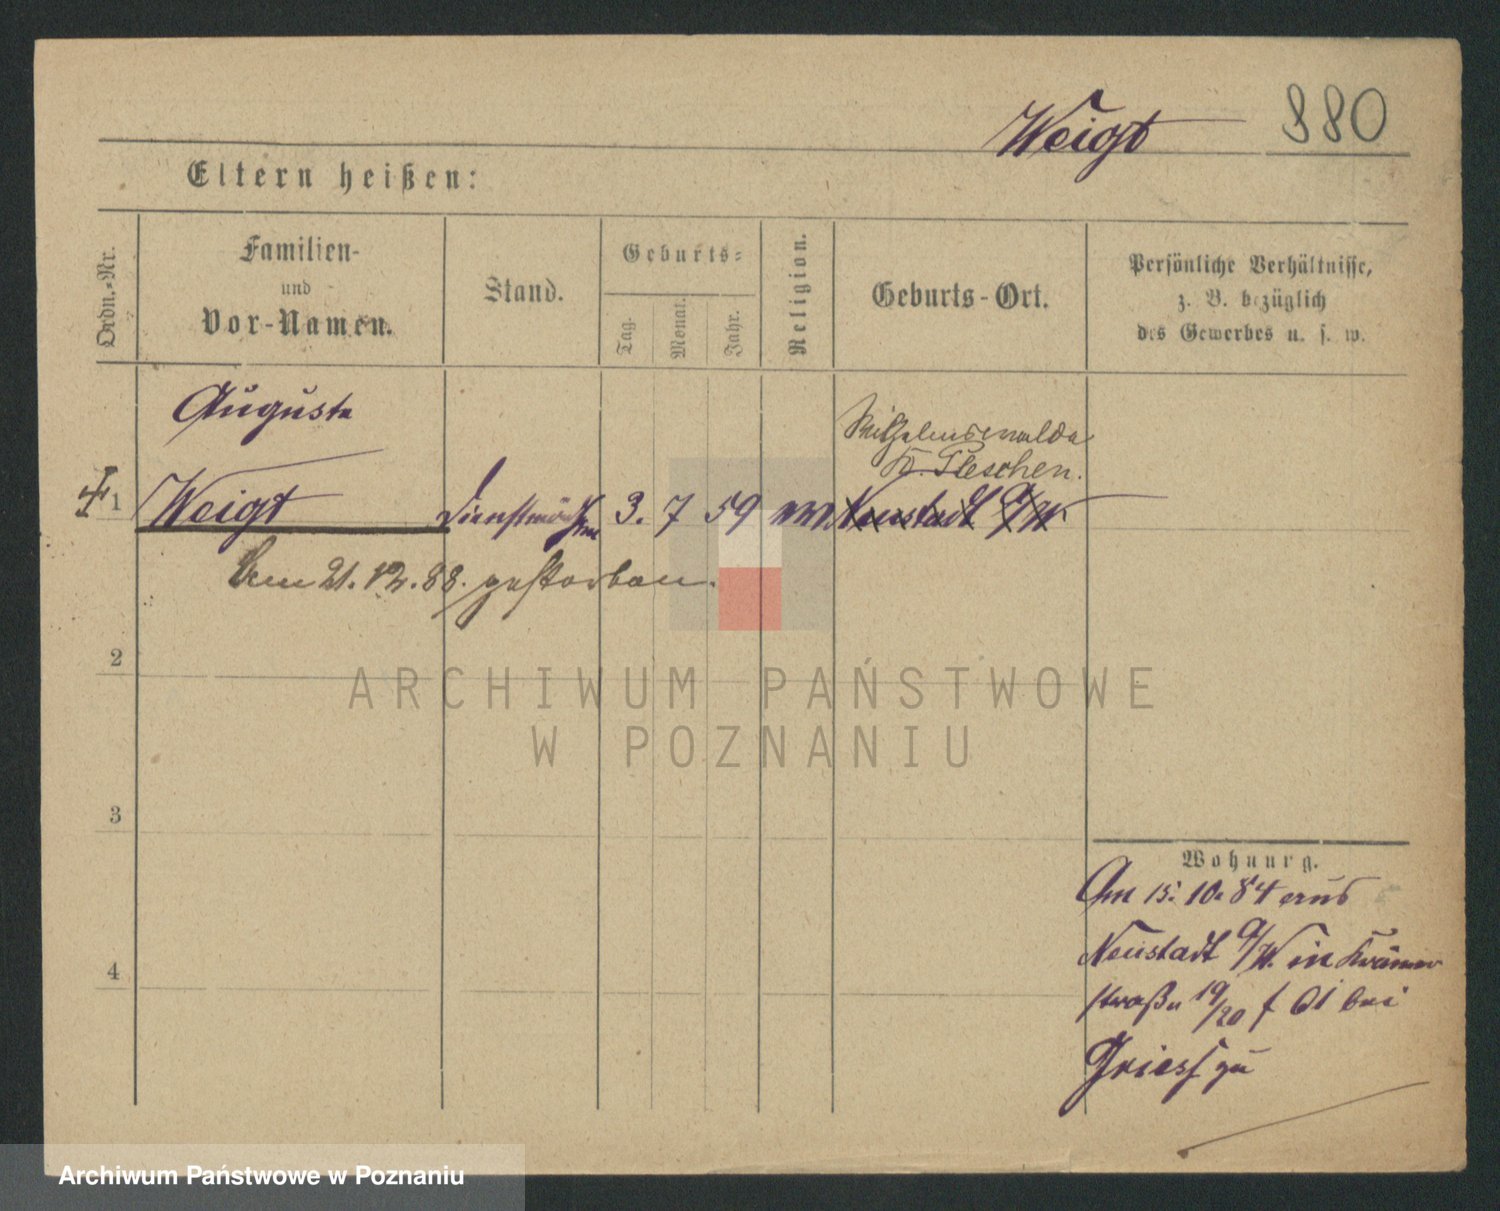 Weigt 880
Eltern heißen:
Ordn.-Nr.
Familien-
und
Vor-Namen.
Stand.
Geburts-
Tag.
Monat.
Jahr.
Religion.
Geburts-Ort.
Persönliche Verhältnisse,
z. B. bezüglich
des Gewerbes u. s. w.
Auguste
Wilhelmswalde
Kr. Pleschen.
1 Weigt 3. 7 59 Neustadt a/W.
am 21.12.88. gestorben.
2
3
4
Wohnung.
Am 15. 10. 84 aus
Neustadt a/W. in Krämer
straße 19/20 bei
Griess zu
ARCHIWUM PAŃSTWOWE
W POZNANIU
Archiwum Państwowe w Poznaniu